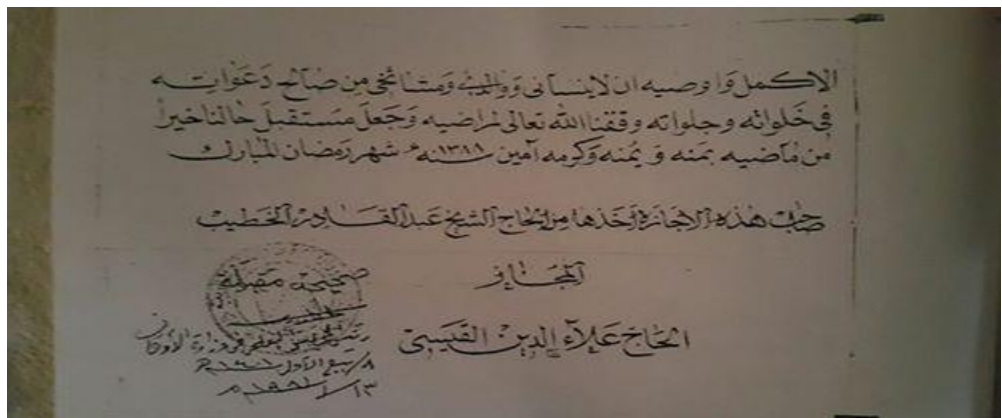 الاكمل وَاوصيه ان لاينسانى ووالديَّ وَمشائخى من صَالح دَعَواته
فى خَلواته وجلواته وفقنا الله تعالى لمراضيه وَجَعلَ مسَتقبلَ حَالناخيراً
من مَاضيه بمَنه وَيُمنه وَكرمه آمين سنه ١٣٨٩ شهر رَمضان المُبارك
صاحب هذه الاجازة أخذها من الحاج الشيخ عَبدالقادر الخطيب
المجاز
الحاج عَلاء الدين القيسي
صحيحة مصدقة
رئيس المجلس العلمي في وزارة الأوقاف
٨/ربيع الأول/١٤٠١ هـ
١٣/١/١٩٨١ م